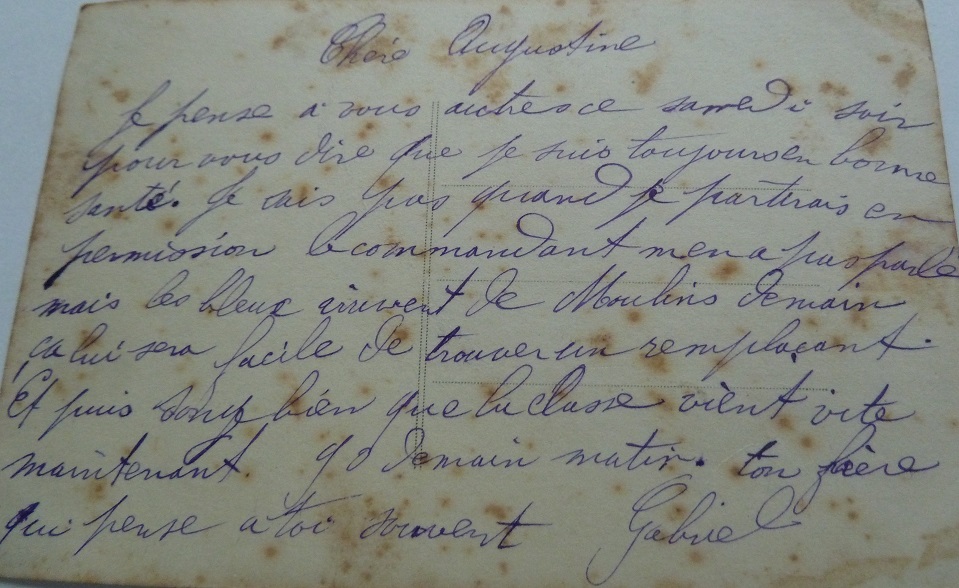 Chère Augustine
Je pense a vous autres ce samedi soir
pour vous dire que je suis toujours en bonne
santé. Je sais pas quand je partirais en
permission le commandant men a pas parlé
mais les bleux arrivent de Moulins demain
ça lui sera facile de trouver un remplaçant.
Et puis song bien que la classe vient vite
maintenant. 90 demain matin. ton frère
qui pense a toi souvent Gabriel